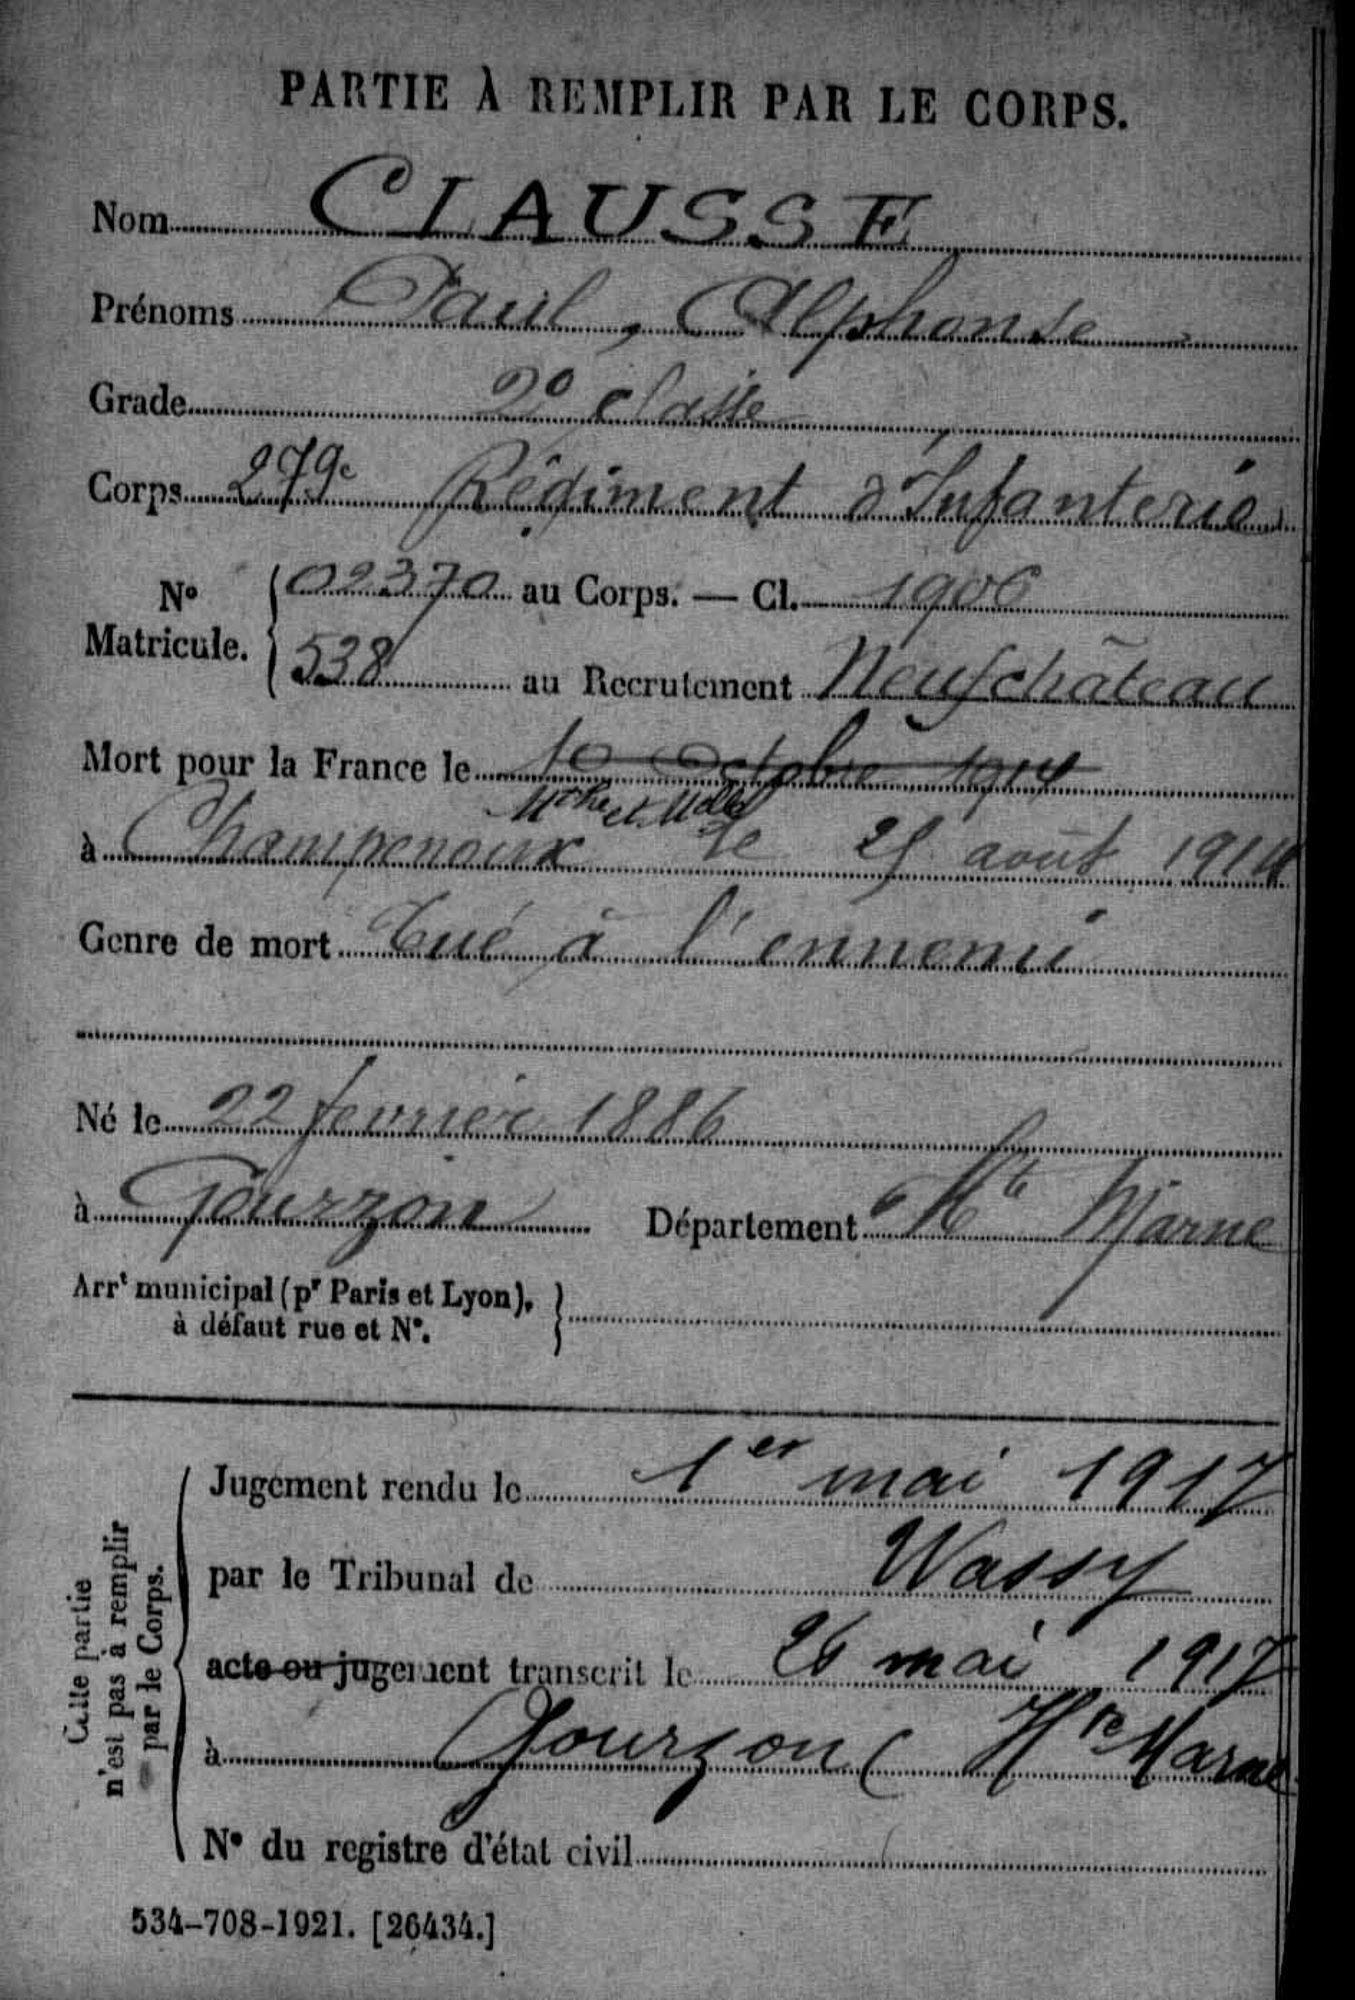 PARTIE À REMPLIR PAR LE CORPS.
Nom CLAUSSE
Prénoms Paul, Alphonse
Grade 2e classe
Corps 279e Régiment d'Infanterie
No Matricule. 02370 au Corps. — Cl. 1906
538 au Recrutement Neufchâteau
Mort pour la France le 10 Octobre 1914
Mthe et Mlle
à Champenoux le 25 août 1914
Genre de mort Tué à l'ennemi
Né le 22 février 1886
à Gourzon Département Hte Marne
Arrt municipal (pr Paris et Lyon),
à défaut rue et No.
Cette partie n'est pas à remplir par le Corps.
Jugement rendu le 1er mai 1917
par le Tribunal de Wassy
acte ou jugement transcrit le 26 mai 1917
à Gourzon (Hte Marne
No du registre d'état civil
534-708-1921. [26434.]